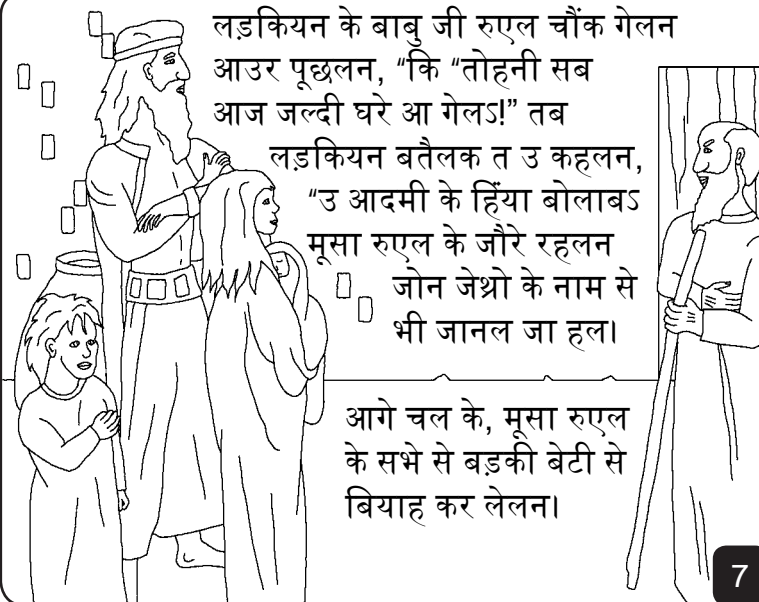 लड़कियन के बाबु जी रुएल चौंक गेलन
आउर पूछलन, “कि “तोहनी सब
आज जल्दी घरे आ गेलऽ!” तब
लड़कियन बतैलक त उ कहलन,
“उ आदमी के हिंया बोलाबऽ
मूसा रुएल के जौरे रहलन
जोन जेथ्रो के नाम से
भी जानल जा हल।
आगे चल के, मूसा रुएल
के सभे से बड़की बेटी से
बियाह कर लेलन।
7